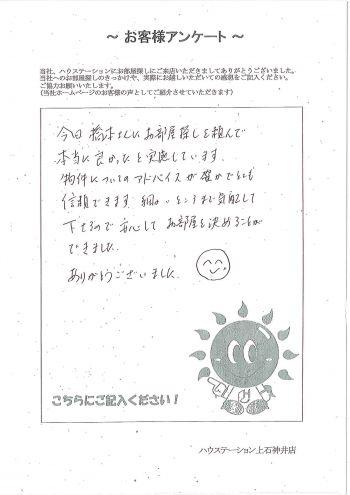 ～ お客様アンケート ～
当社、ハウステーションにお部屋探しにご来店いただきましてありがとうございました。
当社へのお部屋探しのきっかけや、実際にお越しいただいての感想をご記入ください。
ご協力お願いいたします。
(当社ホームページのお客様の声としてご紹介させていただきます)
今回 橋本さんにお部屋探しを頼んで
本当に良かったと実感しています。
物件についてのアドバイスが確かでとても
信頼できます。細かいところまで気配して
下さるので安心してお部屋を決めることが
できました。
ありがとうございました。
こちらにご記入ください！
ハウステーション上石神井店